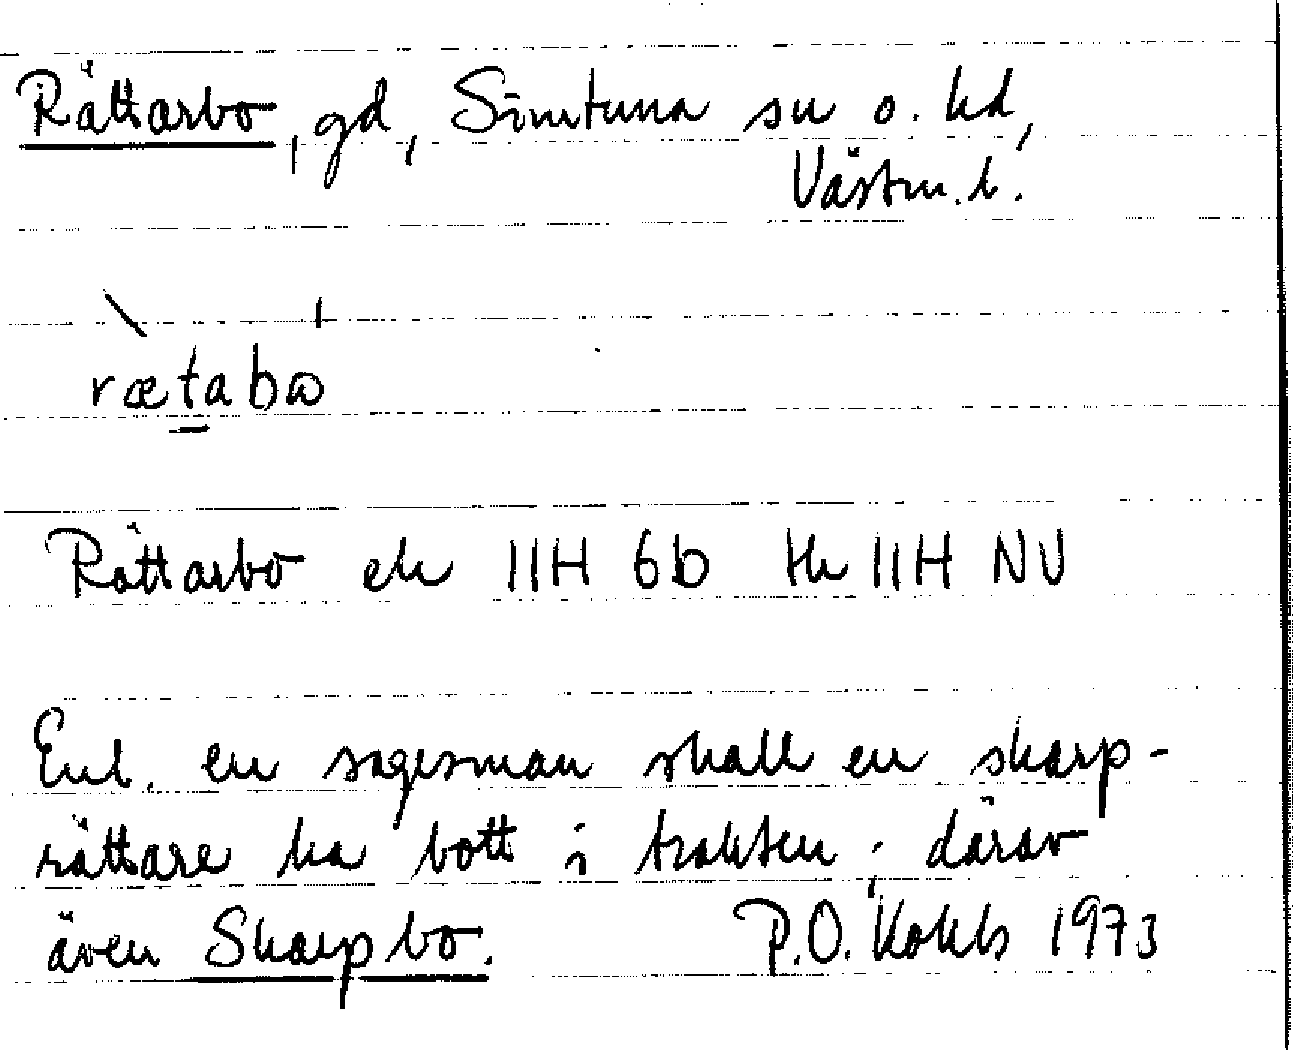 Rättarbo, gd, Simtuna sn o. hd,
Västm. l.
rætabω
Rättarbo ek 11H 6b tk 11H NV
Enl. en sagesman skall en skarp-
rättare ha bott i trakten; därav
även Skarpbo. P.O. Kokb 1973